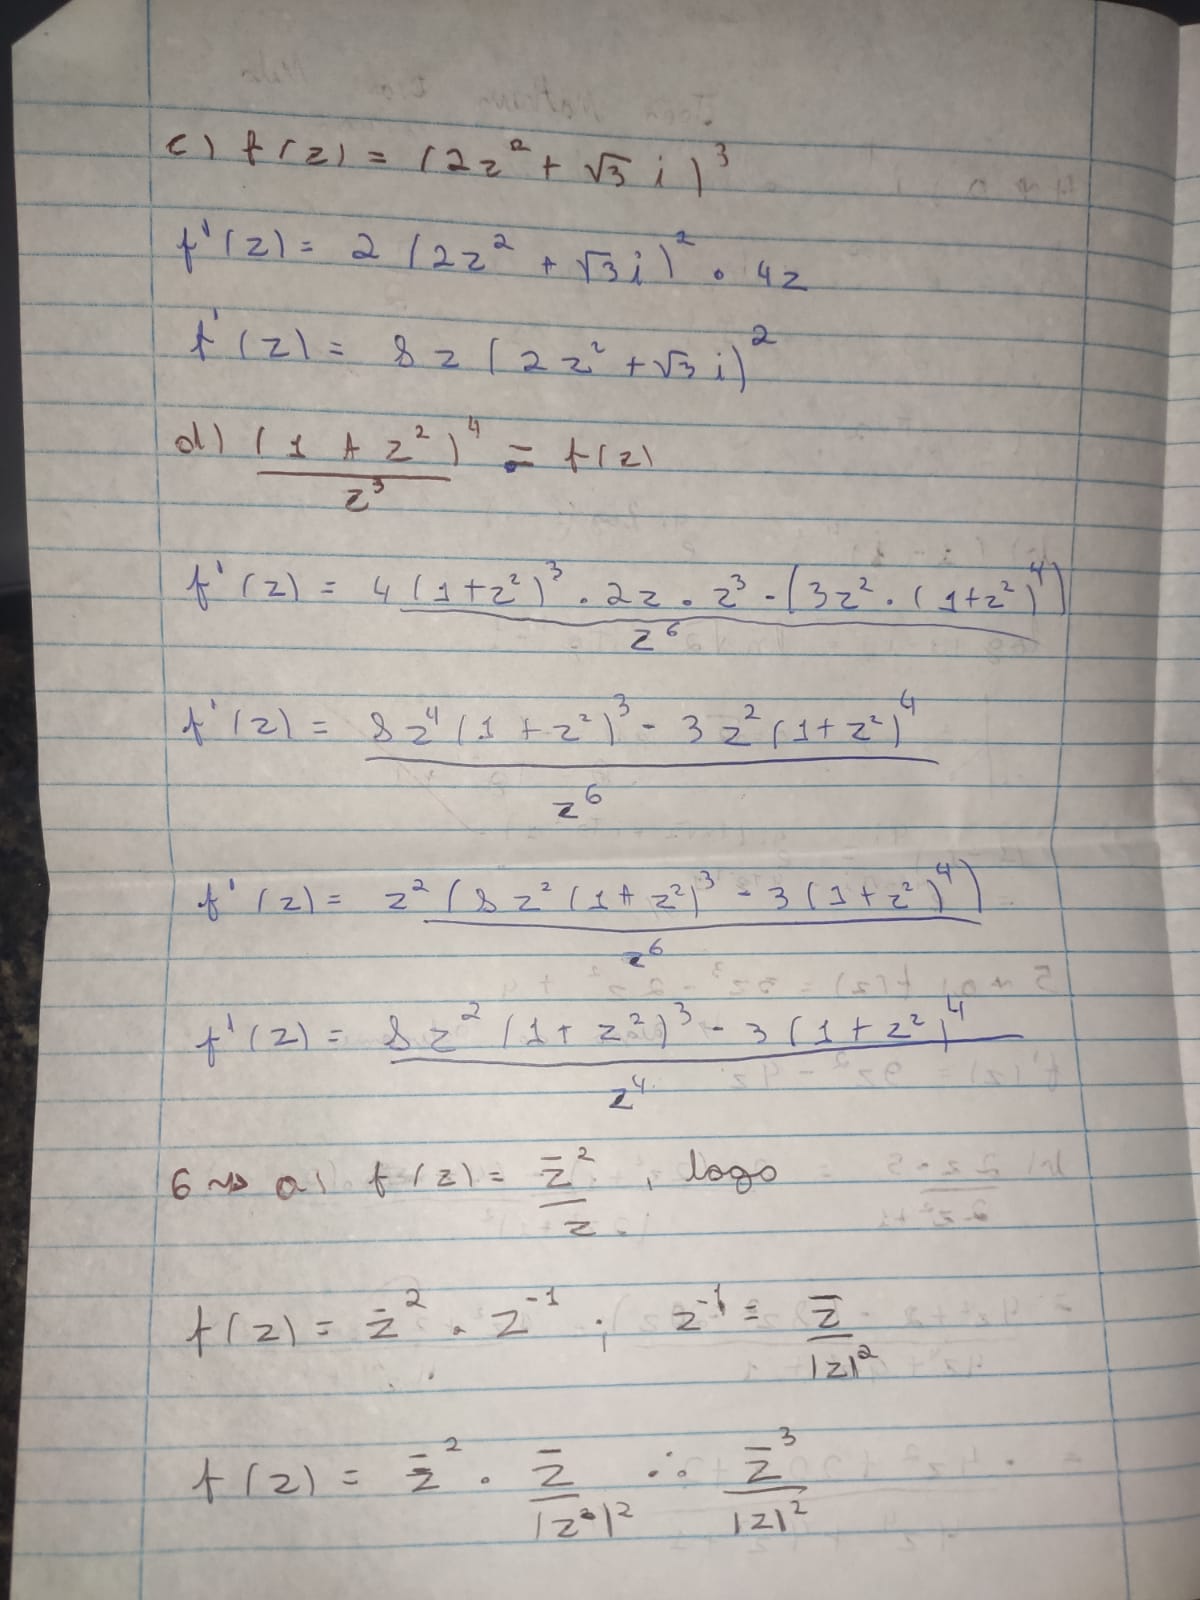 c) f(z) = (2z² + √3 i)³
f'(z) = 2 (2z² + √3 i)² • 4z
f'(z) = 8z (2z² + √3 i)²
d) (1 + z²)⁴ / z³ = f(z)
f'(z) = 4(1+z²)³ • 2z • z³ - (3z² • (1+z²)⁴) / z⁶
f'(z) = 8z⁴(1+z²)³ - 3z²(1+z²)⁴ / z⁶
f'(z) = z² (8z²(1+z²)³ - 3(1+z²)⁴) / z⁶
f'(z) = 8z²(1+z²)³ - 3(1+z²)⁴ / z⁴
6 ⇝ a) f(z) = z̄² / z , logo
f(z) = z̄² • z⁻¹ ; z⁻¹ = z̄ / |z|²
f(z) = z̄² • z̄ / |z²|² ∴ z̄³ / |z|²